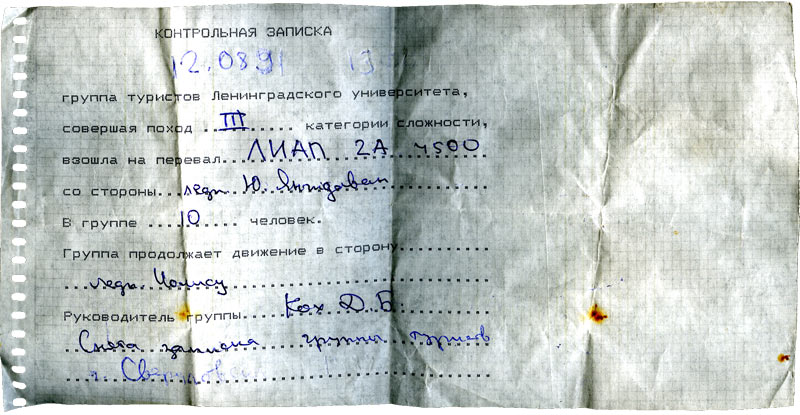 КОНТРОЛЬНАЯ ЗАПИСКА
12.08 91 19
группа туристов Ленинградского университета,
совершая поход ..III........ категории сложности,
взошла на перевал....ЛИАП 2А 4500
со стороны...ледн. Ю.
В группе ....10..... человек.
Группа продолжает движение в сторону...........
ледн.
Руководитель группы.....Кох Д.Б.
Снята записка группы туристов
г.